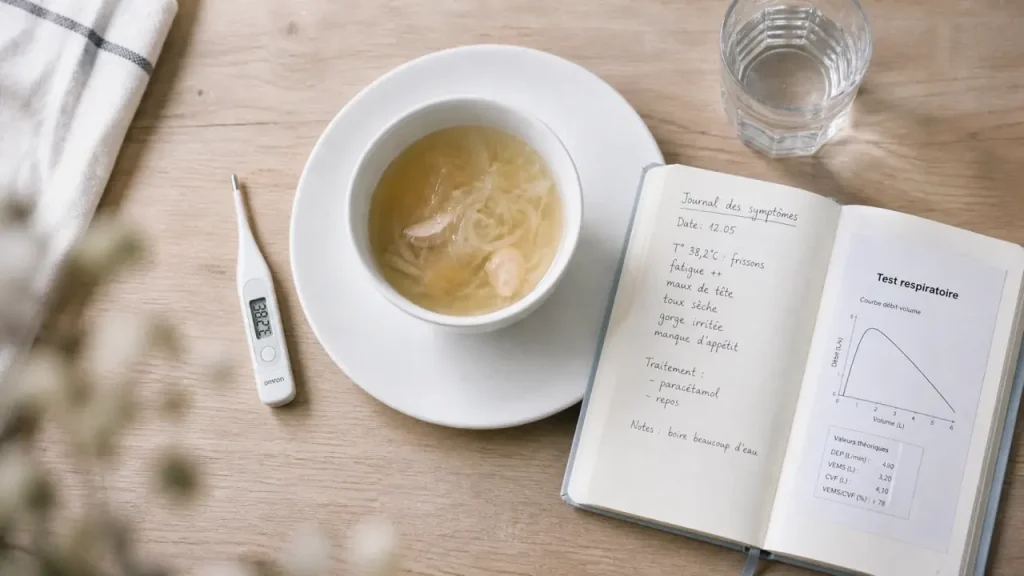 38.2
omron
Journal des symptômes
Date : 12.05
T° 38,2°C : frissons
fatigue ++
maux de tête
toux sèche
gorge irritée
manque d'appétit
Traitement :
- paracétamol
- repos
Notes : boire beaucoup d'eau
Test respiratoire
Courbe débit-volume
Débit (L/s)
0 1 2 3 4 5 6
Volume (L)
Valeurs théoriques
DEP (L/min) : 4,90
VEMS (L) : 3,20
CVF (L) : 4,10
VEMS/CVF (%) : > 78